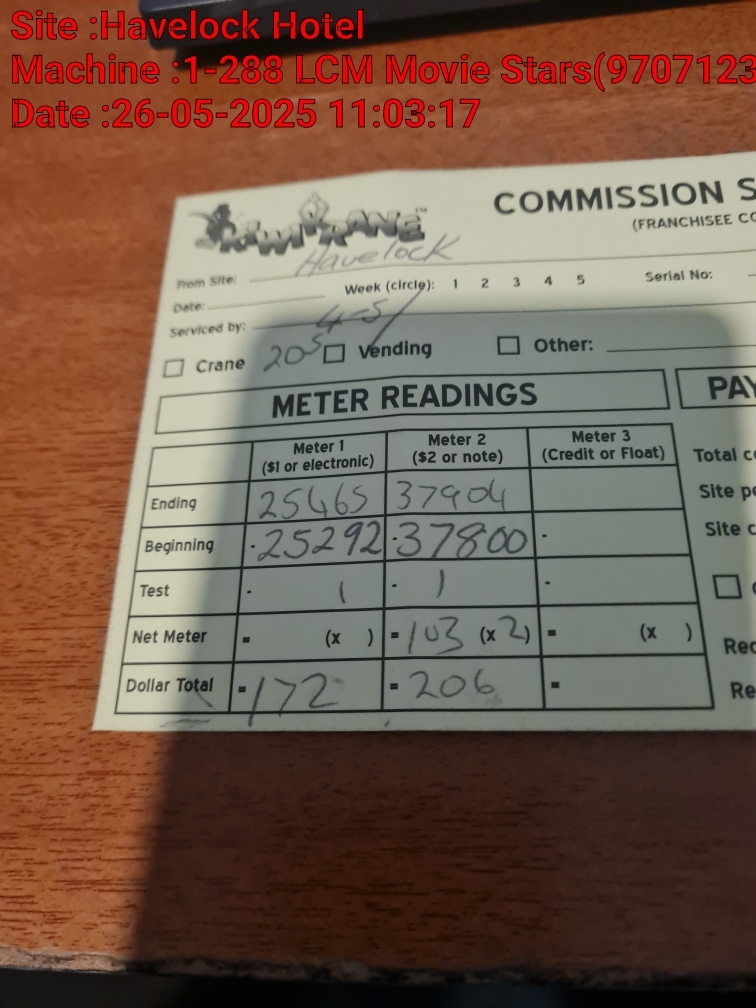 Site :Havelock Hotel
Machine :1-288 LCM Movie Stars(9707123
Date :26-05-2025 11:03:17
KIWI KRANE™
COMMISSION S
(FRANCHISEE CO
From Site: Havelock
Date:
Week (circle): 1 2 3 4 5
Serial No:
Serviced by: 4-5/
Crane 205 Vending Other:
METER READINGS
PAY
Meter 1 ($1 or electronic) Meter 2 ($2 or note) Meter 3 (Credit or Float)
Total co
Ending 25465 37904
Site pe
Beginning - 25292 - 37800 -
Site c
Test - 1 - 1 -
Net Meter = (x ) = 103 (x 2) = (x )
Rec
Dollar Total = 172 = 206 =
Re